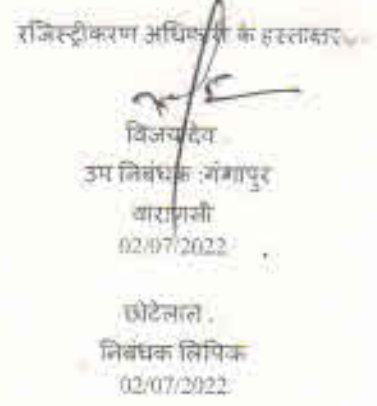 रजिस्ट्रीकरण अधिकारी के हस्ताक्षर
विजय देव
उप निबंधक :गंगापुर
वाराणसी
02/07/2022
छोटेलाल .
निबंधक लिपिक
02/07/2022